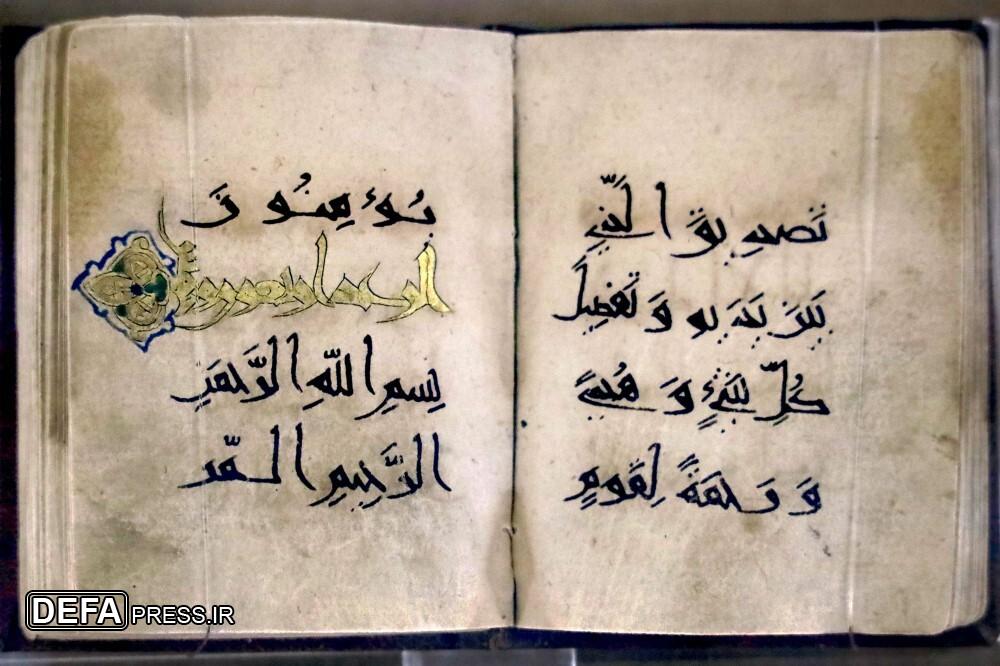 تَصدِيقَ الَّذِي
بَينَ يَدَيهِ وَ تَفصِيلَ
كُلِّ شَيءٍ وَ هُدىً
وَ رَحمَةً لِقَومٍ
يُؤمِنُونَ
بِسمِ اللّهِ الرَّحمَنِ
الرَّحِيمِ المّر
DEFAPRESS.IR